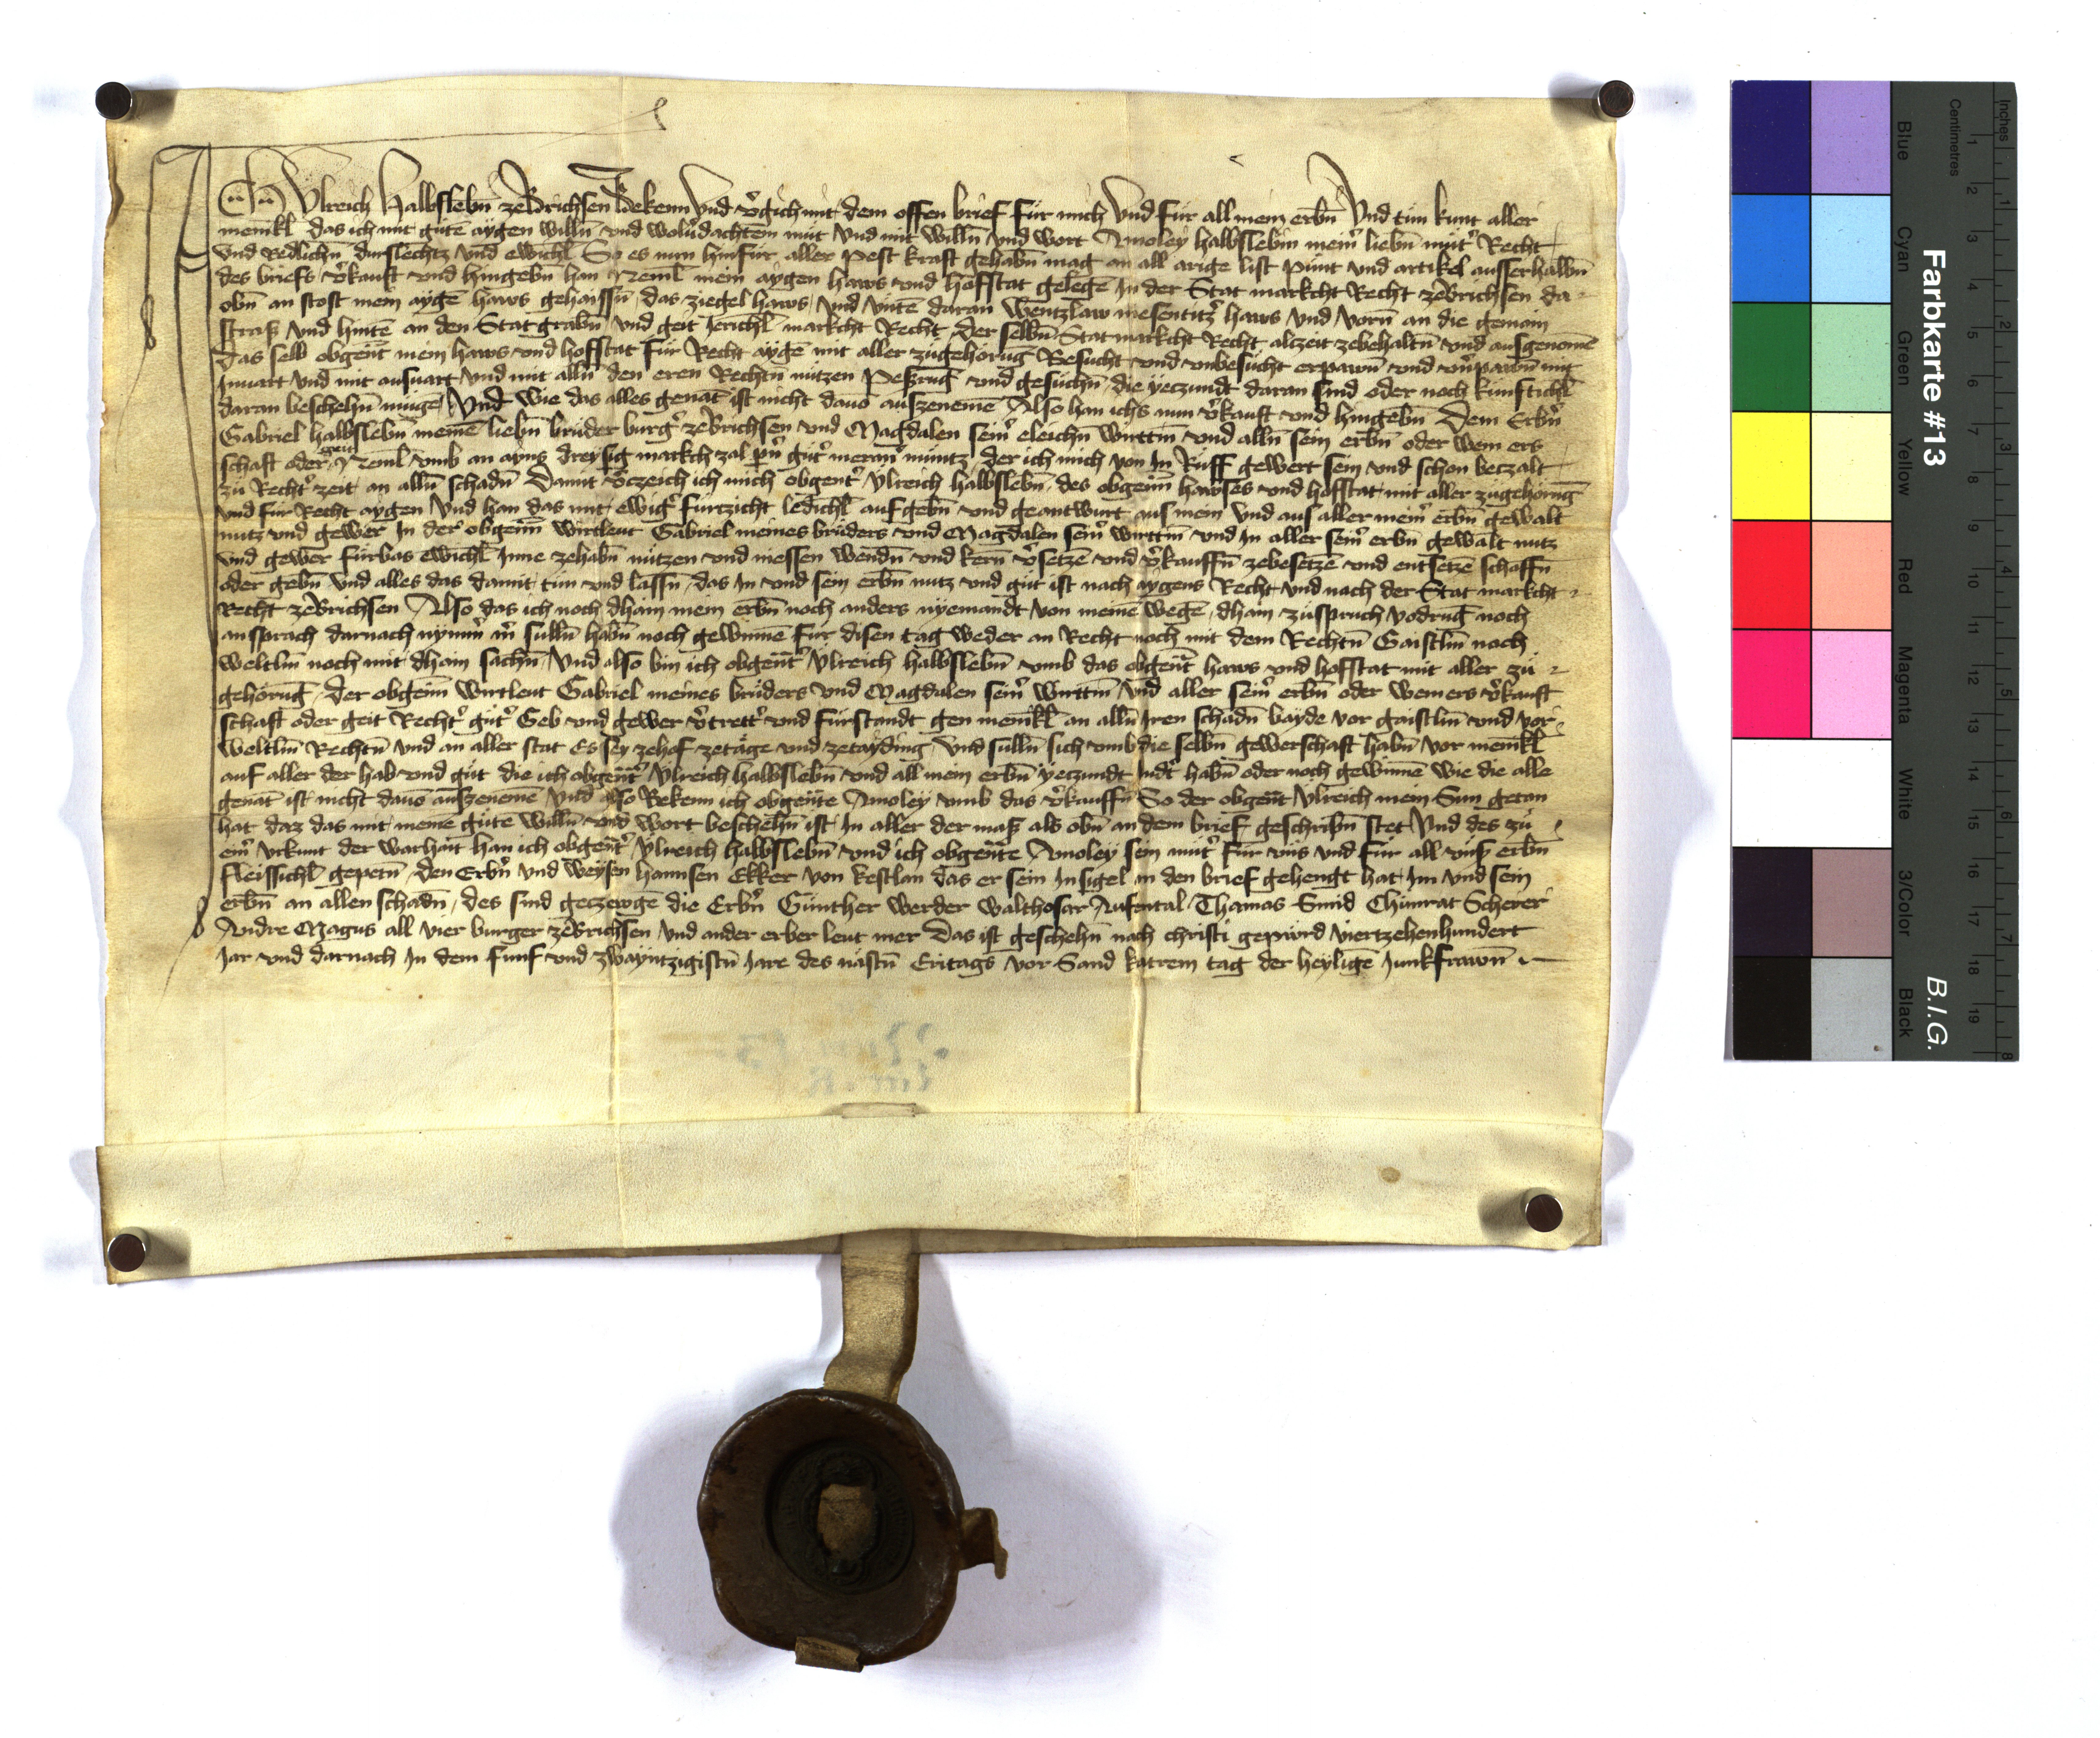 Ich Vlreich Halbslebn̄ zeBrichsen Bekenn Vnd v̾gich mit dem offen brief Für mich Vnd Für all mein erbn̄ Vnd tün kunt aller
menikl̄ das ich mit gůtē aygen willn̄ vnd wolůdachtem můt Vnd mit willn̄ Vnd wort Amoley halbslebin mein̾ liebn̄ můt̾ Recht
Vnd Redlichn̄ durslechtz Vnd ewichl̄ So es nun hinfür aller Pest kraft gehabn̄ mag an all arige list Půnt vnd artikel ausserhalbn̄
des briefs v̾kauft vnd hingebn̄ han Neml̄ mein aygen haws vnd hoffstat gelegē In der Stat markcht Recht zeBrichsen da
obn̄ an stost mein aygē haws gehaissn̄ das ziegel haws Vnd vntē daran Wentzlaw mesentitz̾ haws Vnd Vorn̄ an die gemain
straß Vnd hintē an den Statgrabn̄ Vnd geit Ierichl̄ markcht Recht der selbn̄ Stat markcht Recht alczeit zebehaltn̄ vnd ausgenomē
Das selb obgen̄t mein haws vnd hofstat für Recht aygē mit aller zůgehöruḡ Besucht vnd vnbesucht erpawn̄ vnd vn̾pawn̄ mit
Inuart Vnd mit ausuart Vnd mit alln̄ den eren Rechtn̄ nutzen Peßruḡ vnd gesuchn̄ die yeczundt daran sind oder noch künftichl̄
daran beschehn̄ müge Vnd wie das alles genāt ist nicht dauō auszenemē Also han ichs nun v̾kauft vnd hingebn̄ Dem Erbn̾
Gabriel halbslebn̄ meinē liebn̄ brüder burg̾ zeBrichsen vnd Magdalen sein̾ eleichn̄ wirttin̄ vnd alln̄ sein erbn̄ oder wem ers
schaft oder geit Neml̄ vmb an ayns dreysig markch zal pn̾ gůt̾ meran̾ müntz der ich mich von In Rüff gewert sein vnd schon beczalt
zu Recht̾ zeit an alln̄ schadn̄ Damit v̾czeich ich mich obgent̾ Vlreich halbslebn̄ des obgenn̄ hawses vnd hofstat mit aller zůgehöruḡ
vnd für Recht aygen Vnd han das mit ewig̾ fürtzicht ledichl̄ aufgebn̄ vnd geantwurt aus mein Vnd aus aller mein̾ erbn̄ gewalt
nutz vnd gewer In der obgenn̄ wirtleut Gabriel meines brüders vnd Magdalen sein̾ wirttin̄ vnd In aller sein̾ erbn̄ gewalt nutz
Vnd gewer fürbas ewichl̄ Inne zehabn̄ nützen vnd niessen wendn̄ vnd kern̄ v̾setzē vnd v̾kauffn̄ zebesetzē vnd entsetzē schaffn̄
oder gebn̄ Vnd alles das damit tun vnd lassn̄ das In vnd sein erbn̄ nutz vnd gůt ist nach aygens Recht Vnd nach der Stat markcht
Recht zeBrichsen Also das ich noch dhain mein erbn̄ noch anders nyemandt von meinē wegē dhain zůspruch vodruḡ noch
ansprach darnach nym̄ m̾ sulln̄ habn̄ noch gewinnē für disen tag weder an Recht noch mit dem Rechtn̄ Gaistlin̄ noch
weltlin̄ noch mit dhain sachn̄ Vnd also bin ich obgent̾ Vlreich halbslebn̄ vmb das obgen̄t haws vnd hofstat mit aller zů
gehöruḡ der obgenn̄ wirtleut Gabriel meines brüders vnd Magdalen sein̾ wirttin̄ Vnd aller sein̾ erbn̄ oder wem ers v̾kauft
schaft oder geit Recht̾ gůt̾ Geb vnd gewer v̾trett̾ vnd fürstandt gen menikl̄ an alln̄ Iren schadn̄ bayde vor gaistlin̄ vnd vor
weltlin̄ Rechtn̄ Vnd an aller stat Es sey zehof zetäge vnd zetayding Vnd sulln̄ sich vmb die selbn̄ gewerschaft habn̄ vor menikl̄
auf aller der hab vnd gůt die ich obgent̾ Vlreich halbslebn̄ vnd all mein erbn̄ yeczundt Indt̾ habn̄ oder noch gewinnē wie die alle
genāt ist nicht dauō auszenemē Vnd also Bekenn ich obgen̄te Amoley vmb das v̾kauffn̄ So der obgen̄t Vlreich mein Sun getan
hat daz das mit meinē gůtē willn̄ vnd wort beschehn̄ ist In aller der maß als obn̄ an dem brief geschribn̄ stet Vnd des zů
ein̾ Vrkunt der warhait han ich obgent̾ Vlreich halbslebn̄ vnd ich obgen̄te Amoley sein můt̾ für vns vnd für all vnß erbn̄
fleissichl̄ gepetn̄ den Erbn̾ vnd weysen hannsen Ekker von kestlan das er sein Insigel an den brief gehengt hat Im vnd sein
erbn̄ an allen schadn̄ des sind geczewge die Erbn̾ Günther werder walthosar Aufental Thamas Smid Chünrat Scherer
Andre Magus all vier burger zeBrichsen vnd ander erber leut mer Das ist geschehn̄ nach christi gepürd viertzehenhundert
Iar vnd darnach In dem fünf vnd zwayntzigistn̄ Iare des nastn̄ Eritags vor Sand katrein tag der heyligē Iunkfrawn̄
Farbkarte #13
B.I.G.
Blue
Cyan
Green
Yellow
Red
Magenta
White
3/Color
Black
Centimetres
Inches
1 2 3 4 5 6 7 8 9 10 11 12 13 14 15 16 17 18 19
1 2 3 4 5 6 7 8